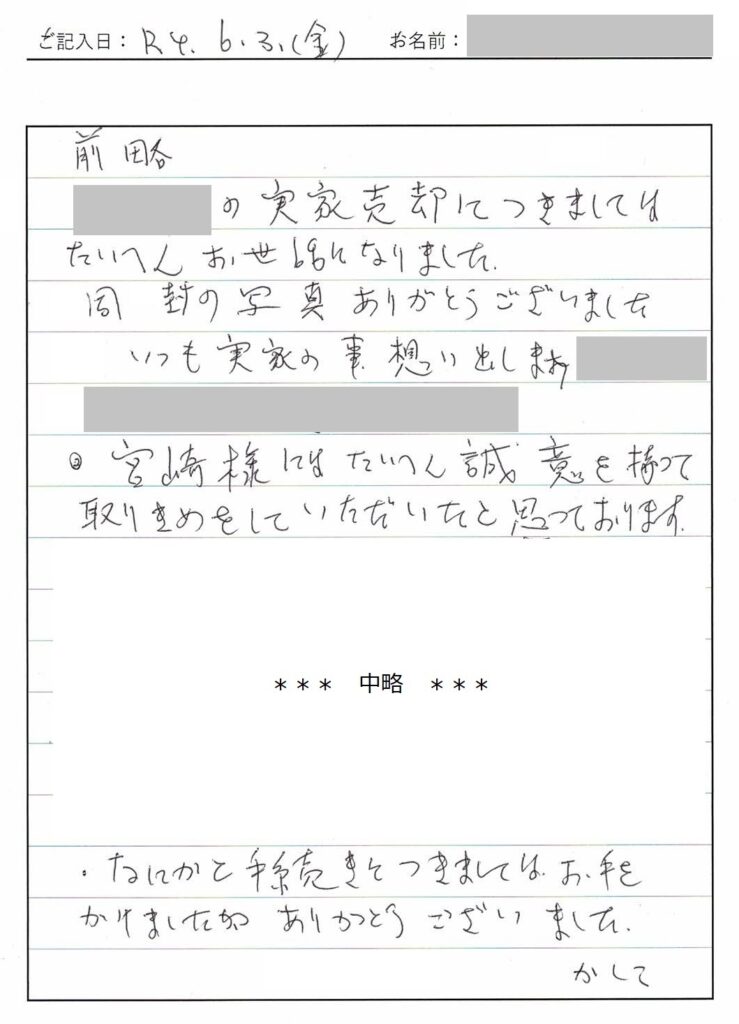 ご記入日： R4. 6. 3.(金) お名前：
前略
の実家売却につきましては
たいへんお世話になりました.
同封の写真ありがとうございました
いつも実家の事想い出します
宮崎様にはたいへん誠意を持って
取りきめをしていただいたと思っております.
＊＊＊ 中略 ＊＊＊
・なにかと手続きにつきましては お手を
かけましたが ありがとうございました.
かしこ